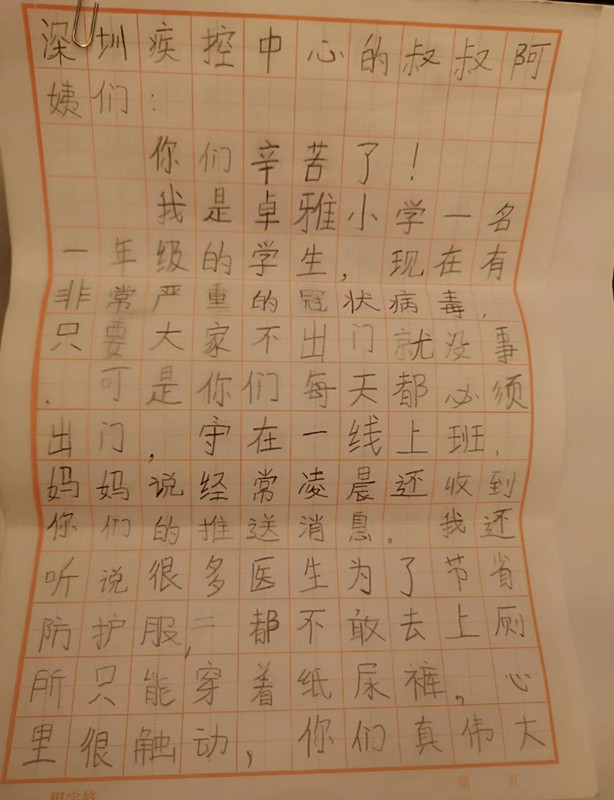 深圳疾控中心的叔叔阿
姨们：
你们辛苦了！
我是卓雅小学一名
一年级的学生，现在有
非常严重的冠状病毒，
只要大家不出门就没事
．可是你们每天都必须
出门，守在一线上班，
妈妈说经常凌晨还收到
你们的推送消息。我还
听说很多医生为了节省
防护服，都不敢去上厕
所只能穿着纸尿裤，心
里很触动，你们真伟大
第 页